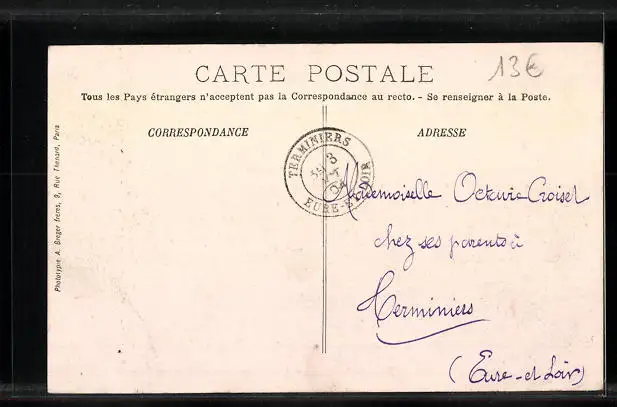 CARTE POSTALE
13€
Tous les Pays étrangers n'acceptent pas la Correspondance au recto. - Se renseigner à la Poste.
CORRESPONDANCE
ADRESSE
TERMINIERS
EURE-ET-LOIR
Mademoiselle Octavie Croiset
chez ses parents à
Terminiers
(Eure-et-Loir)
Phototypie A. Breger frères, 9, Rue Thenard, Paris